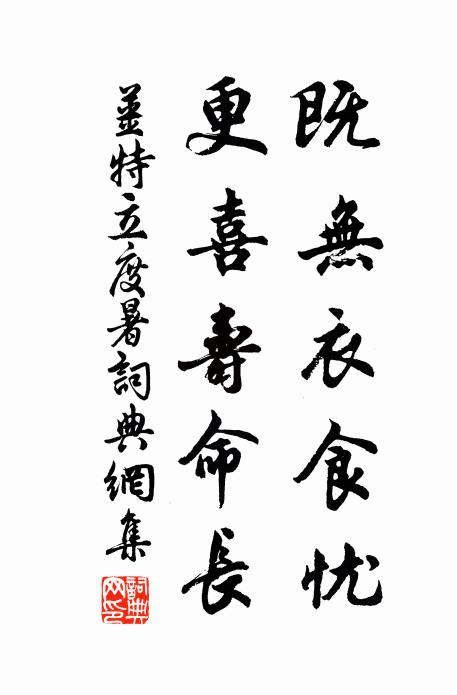 既無衣食忧
更喜壽命長
姜特立度暑詞典網集
詞典網印